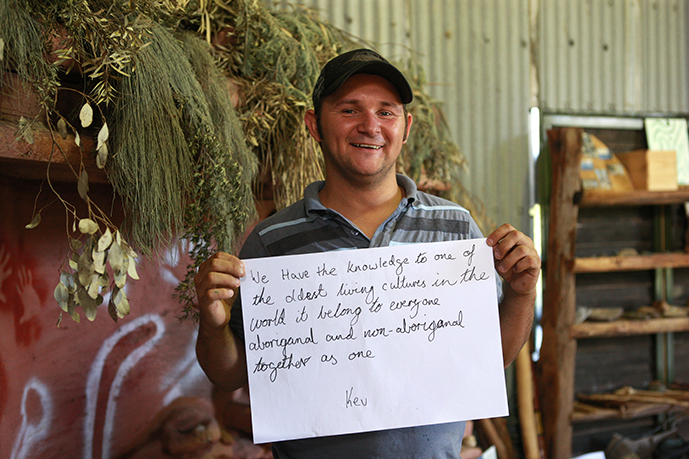 We Have the knowledge to one of
the oldest living cultures in the
world it belong to everyone
aboriganal and non-aboriganal
together as one
Kev